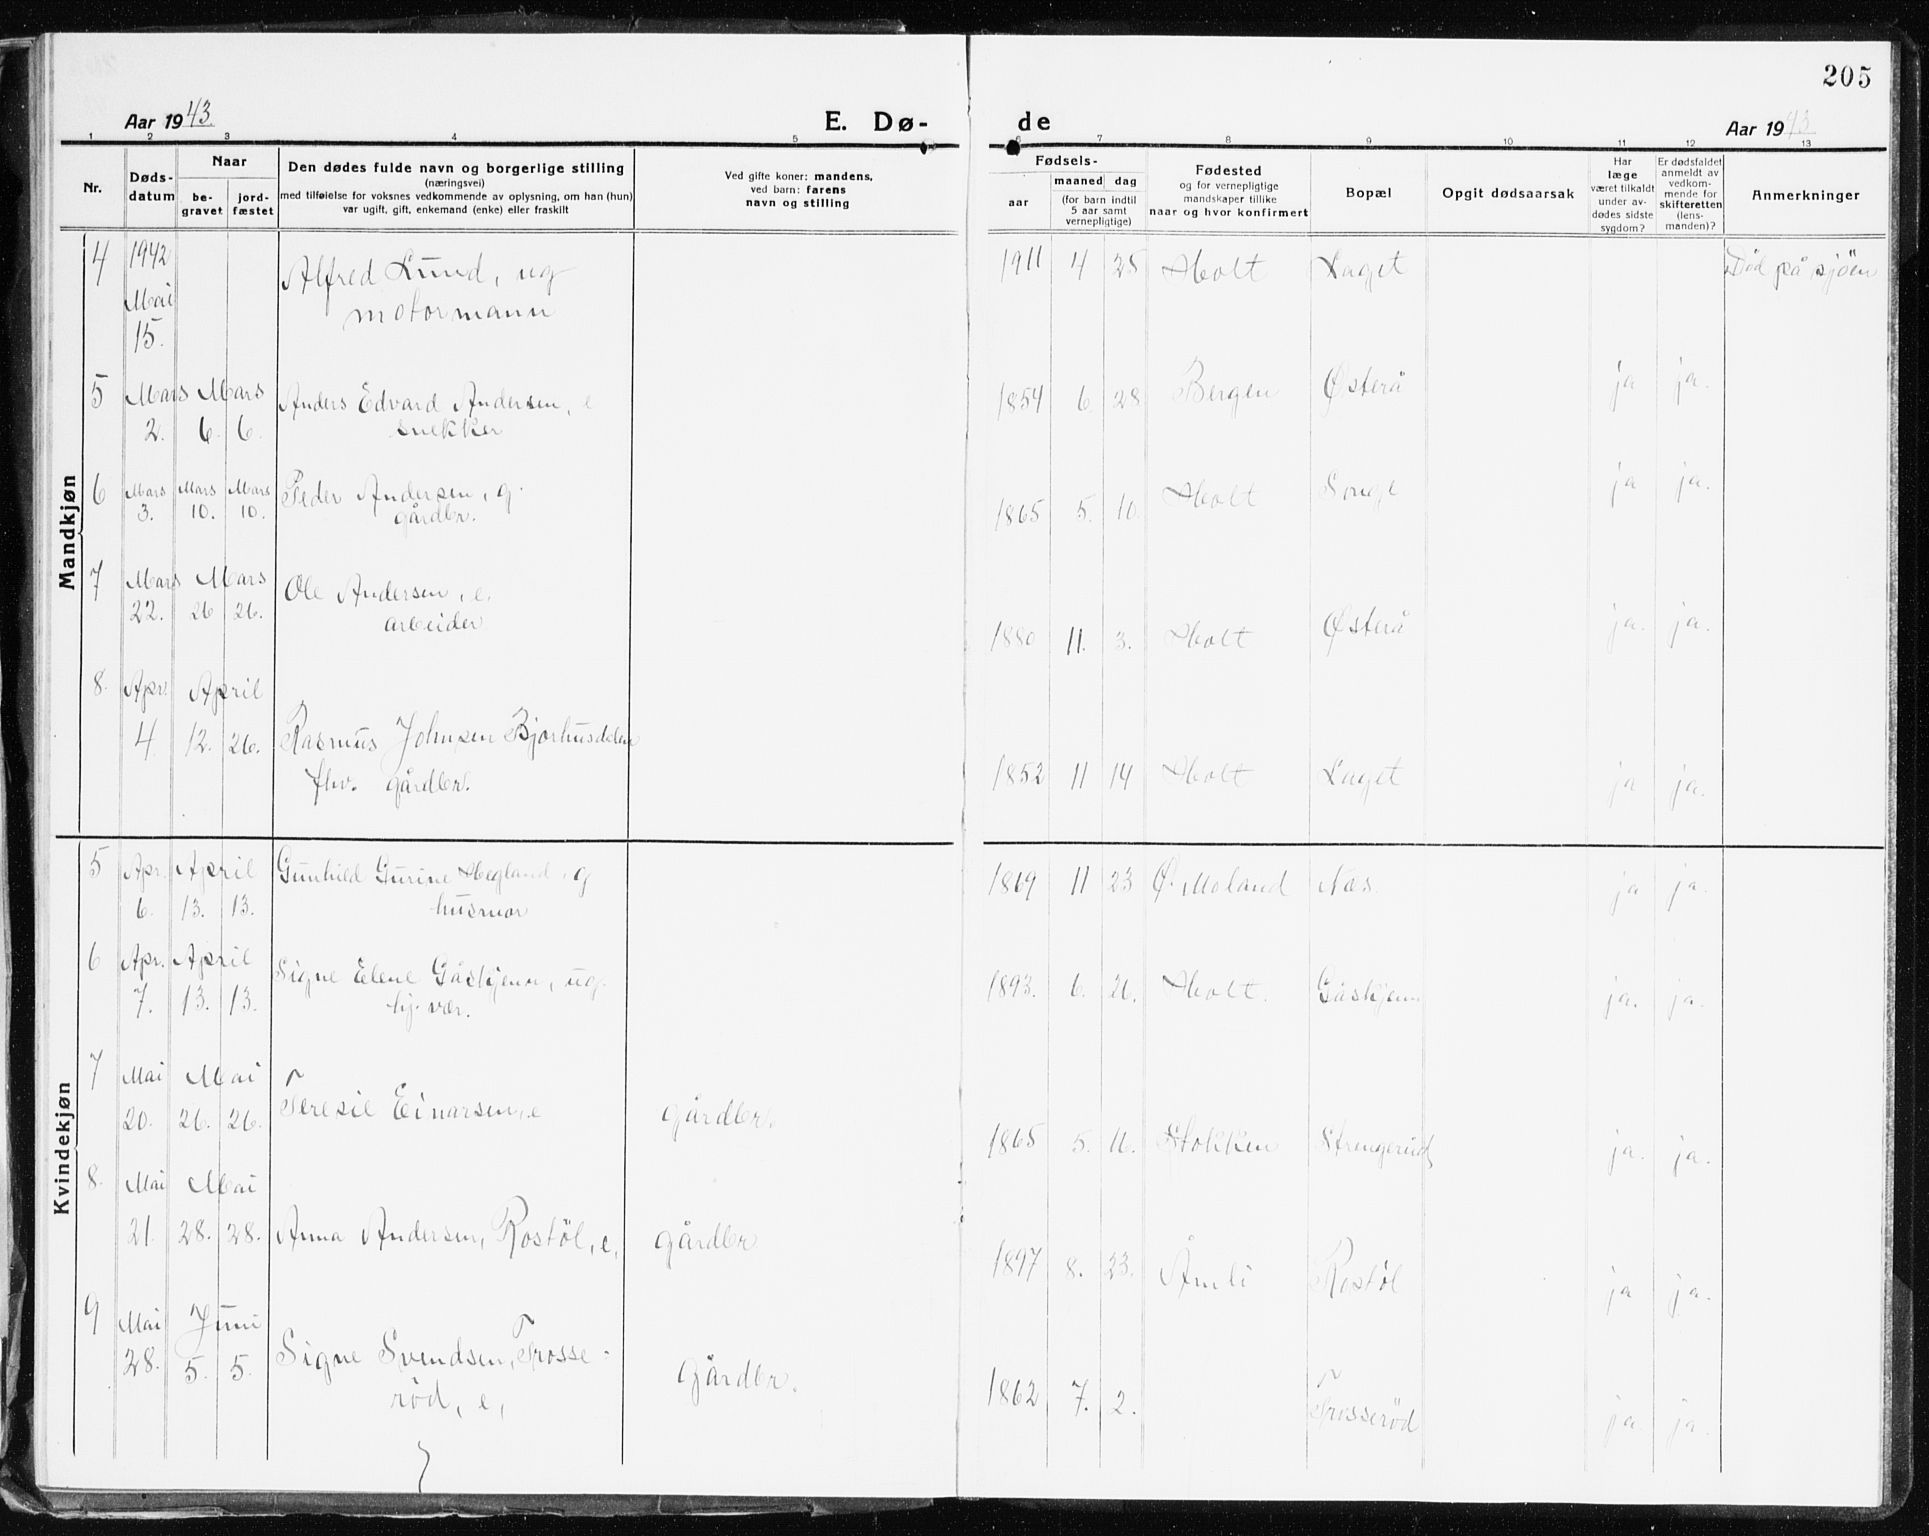 205
Aar 1943.
E. Dø-
de
Aar 1943
1 2 3 4 5 6 7 8 9 10 11 12 13
Nr.
Døds-
datum
Naar
be-
gravet
jord-
fæstet
Den dødes fulde navn og borgerlige stilling
(næringsvei)
med tilføielse for voksnes vedkommende av oplysning, om han (hun)
var ugift, gift, enkemand (enke) eller fraskilt
Ved gifte koner: mandens,
ved barn: farens
navn og stilling
Fødsels-
aar
maaned dag
(for barn indtil
5 aar samt
vernepligtige)
Fødested
og for vernepligtige
mandskaper tillike
naar og hvor konfirmert
Bopæl
Opgit dødsaarsak
Har
læge
været tilkaldt
under av-
dødes sidste
sygdom?
Er dødsfaldet
anmeldt av
vedkom-
mende for
skifteretten
(lens-
manden)?
Anmerkninger
Mandkjøn
4 1942 Alfred Lund, ug 1911 4 25 Holt Laget Död på sjöen
Mai motormann
15.
5 Mars Mars Anders Edvard Andersen, e 1854 6 28 Bergen Østerå ja ja.
2. 6. 6. snekker
6 Mars Mars Mars Peder Andersen, g. 1865 5. 10. Holt Songe ja ja.
3. 10. 10. gårdbr.
7 Mars Mars Ole Andersen, e. 1880 11. 3. Holt Østerå ja. ja.
22. 26 26. arbeider
8. Apr. April
4 12. 26. Rasmus Johnsen Bjorhusdalen 1852 11 14 Holt Laget ja ja.
fhv. gårdbr.
Kvindekjøn
5 Apr. April Gunhild Gurine Hegland, g 1869 11 23 Ø. Moland Nes. ja ja.
6. 13. 13. husmor
6 Apr. April Signe Elene Gåskjenn, ug. 1893. 6. 21. Holt. Gåskjenn ja. ja.
7. 13. 13. hj. vær.
7 Mai Mai
20. 26. 26. Teresie Einarsen, e gårdbr. 1865 5. 11. Stokken Strengerud ja. ja.
8. Mai Mai
21. 28. 28. Anna Andersen, Rostöl, e, gårdbr 1897 8. 23. Åmli Rostöl ja ja.
9 Mai Juni
28. 5. 5. Signe Svendsen, Trosse- gårdbr. 1862 7. 2. Trosseröd ja. ja.
röd, e,